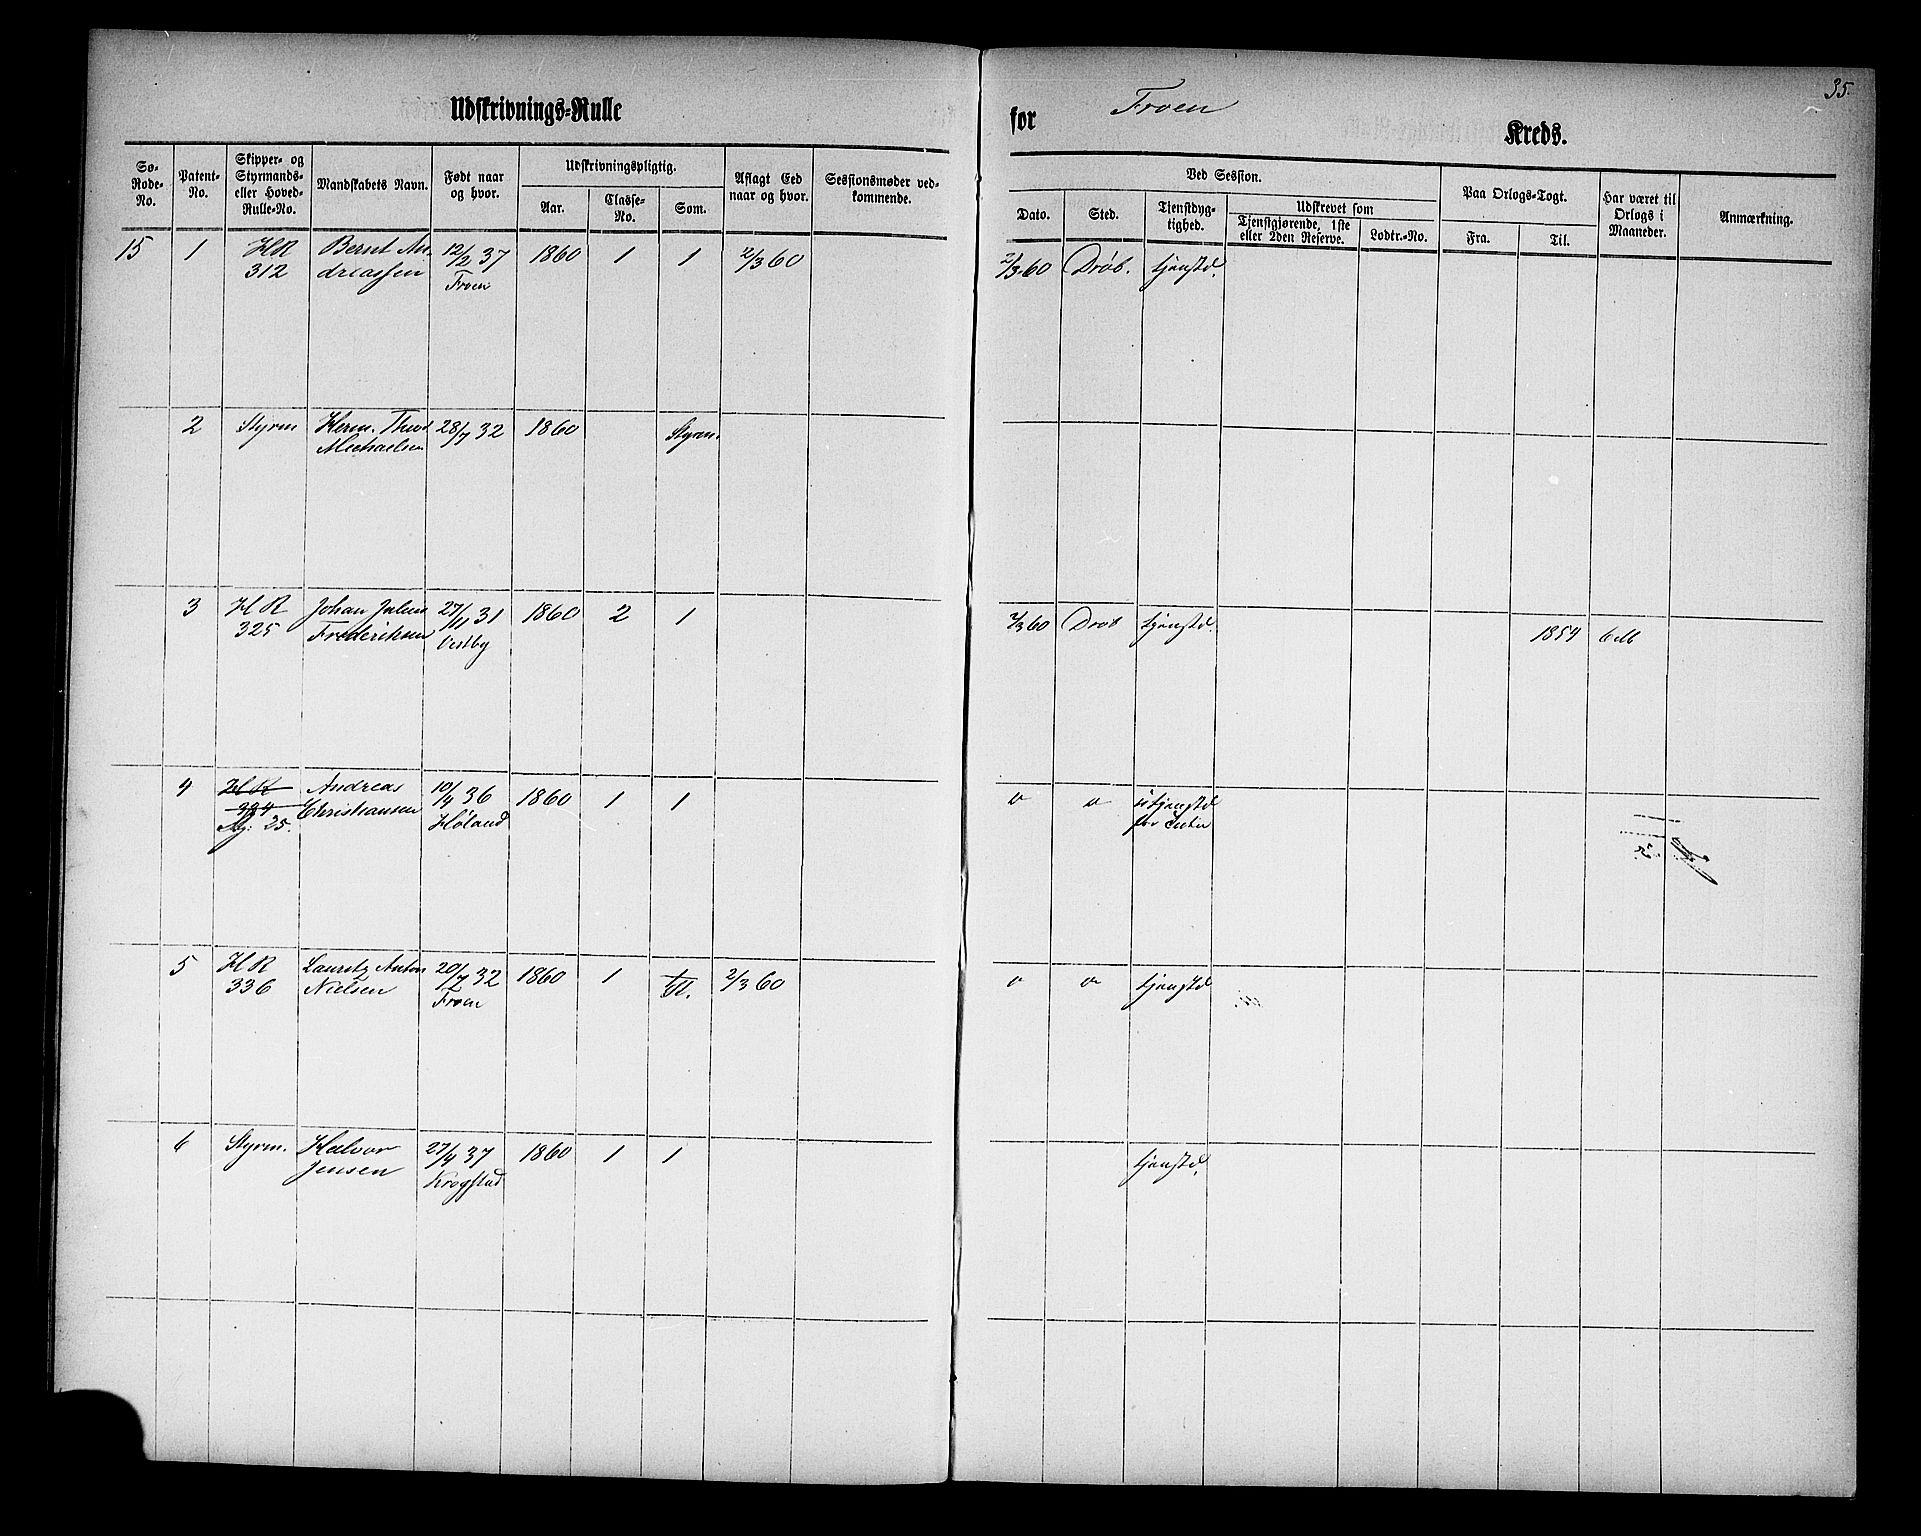 35.
Udskrivnings-Rulle for Froen Kreds.
Sø-Rode-No.
Patent-No.
Skipper- og Styrmands- eller Hoved-Rulle-No.
Mandskabets Navn.
Født naar og hvor.
Udskrivningspligtig.
Aar.
Classe-No.
Som.
Aflagt Eed naar og hvor.
Sessionsmøder vedkommende.
Ved Session.
Dato.
Sted.
Tjenstdygtighed.
Udskrevet som
Tjenstgjørende, 1ste eller 2den Reserve.
Lodtr.-No.
Paa Orlogs-Togt.
Fra.
Til.
Har været til Orlogs i Maaneder.
Anmærkning.
15 1 HR Bernt An- 12/2 37 1860 1 1 2/3 60 2/3 60 Drøb. tjenstd.
312 dreassen Froen
2 Styrm Herm. Theod 28/7 32 1860 Styrm.
Michaelsen
3 HR Johan Julius 27/11 31 1860 2 1 2/3 60 Drøb tjenstd. 1854 6 M
325 Frederiksen Vestby
4 HR Andreas 10/4 36 1860 1 1 " " utjenstd
334 Christiansen Høland for
Ny: 25.
5 HR Lauritz Anton 20/7 32 1860 1 2/3 60 " " tjenstd
336 Nielsen Froen
6 Styrm. Halvor 27/4 37 1860 1 1 tjenstd.
Jensen Krogstad